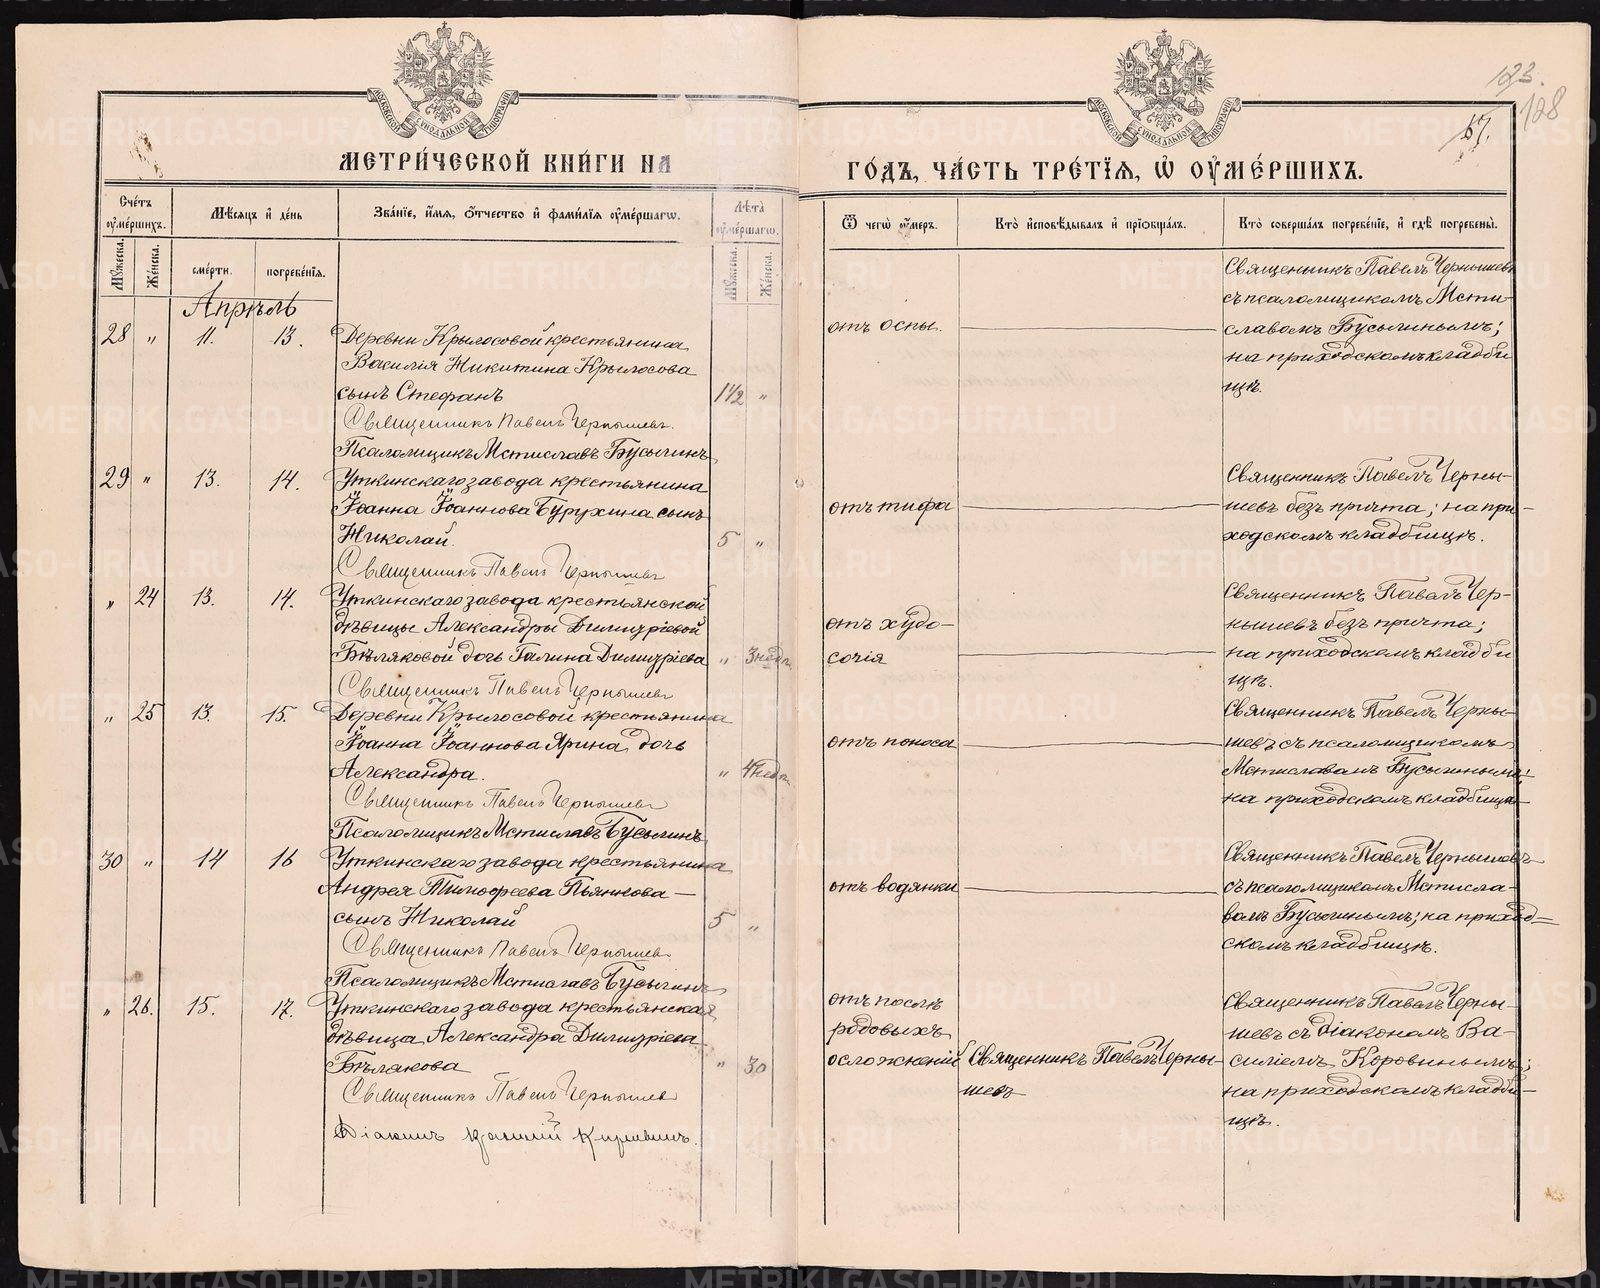 123.
128
57.
МЕТРИ́ЧЕСКОЙ КНИ́ГИ НА
ГО́ДЪ, ЧА́СТЬ ТРЕ́ТІѦ, Ѡ҆ ОУ҆МЕ́РШИХЪ.
Сче́тъ оу҆ме́ршихъ.
Мѣ́сѧцъ и҆ де́нь
Зва́нїе, и҆́мѧ, ѻ҆́тчество и҆ фами́лїѧ оу҆ме́ршагѡ.
Лѣ̀та оу҆ме́ршагѡ.
Ѿ чегѡ̀ оу҆́меръ.
Кто̀ и҆сповѣ́дывалъ и҆ прїѡбща́лъ.
Кто̀ соверша́лъ погребе́нїе, и҆ гдѣ̀ погребены̀.
Мꙋ́жеска.
Же́нска.
сме́рти.
погребе́нїѧ.
Мꙋ́жеска.
Же́нска.
Апрѣль
28 „ 11. 13.
Деревни Крылосовой крестьянина
Василія Никитина Крылосова
сынъ Стефанъ 1 1/2 „
Священникъ Павелъ Чернышевъ.
Псаломщикъ Мстиславъ Бусыгинъ
отъ оспы.
Священникъ Павелъ Чернышевъ
съ псаломщикомъ Мсти-
славомъ Бусыгинымъ;
на приходскомъ кладби
щѣ.
29 „ 13. 14.
Уткинскаго завода крестьянина
Іоанна Іоаннова Бурухина сынъ
Николай. 5 „
Священникъ Павелъ Чернышевъ
отъ тифа
Священникъ Павелъ Черны-
шевъ безъ причта; на при-
ходскомъ кладбищѣ.
„ 24 13. 14.
Уткинскаго завода крестьянской
дѣвицы Александры Димитріевой
Бѣляковой дочь Галина Димитріева „ 3 недѣл.
Священникъ Павелъ Чернышевъ
отъ худо-
сочія
Священникъ Павелъ Чер-
нышевъ безъ причта;
на приходскомъ кладби
щѣ.
„ 25 13. 15.
Деревни Крылосовой крестьянина
Іоанна Іоаннова Ярина дочь
Александра. „ 4 недѣл.
Священникъ Павелъ Чернышевъ
Псаломщикъ Мстиславъ Бусыгинъ
отъ поноса
Священникъ Павелъ Черны-
шевъ съ псаломщикомъ
Мстиславомъ Бусыгинымъ;
на приходскомъ кладбищѣ
30 „ 14 16
Уткинскаго завода крестьянина
Андрея Тимофеева Пьянкова
сынъ Николай 5 „
Священникъ Павелъ Чернышевъ
Псаломщикъ Мстиславъ Бусыгинъ
отъ водянки
Священникъ Павелъ Чернышевъ
съ псаломщикомъ Мстисла-
вомъ Бусыгинымъ; на приход-
скомъ кладбищѣ.
„ 26. 15. 17.
Уткинскаго завода крестьянская
дѣвица Александра Димитріева
Бѣлякова „ 30
Священникъ Павелъ Чернышевъ
Діаконъ Василій Коровинъ.
отъ послѣ
родовыхъ
осложненій
Священникъ Павелъ Черны-
шевъ
Священникъ Павелъ Черны-
шевъ съ діакономъ Ва-
силіемъ Коровинымъ;
на приходскомъ кладби-
щѣ.
METRIKI.GASO-URAL.RU